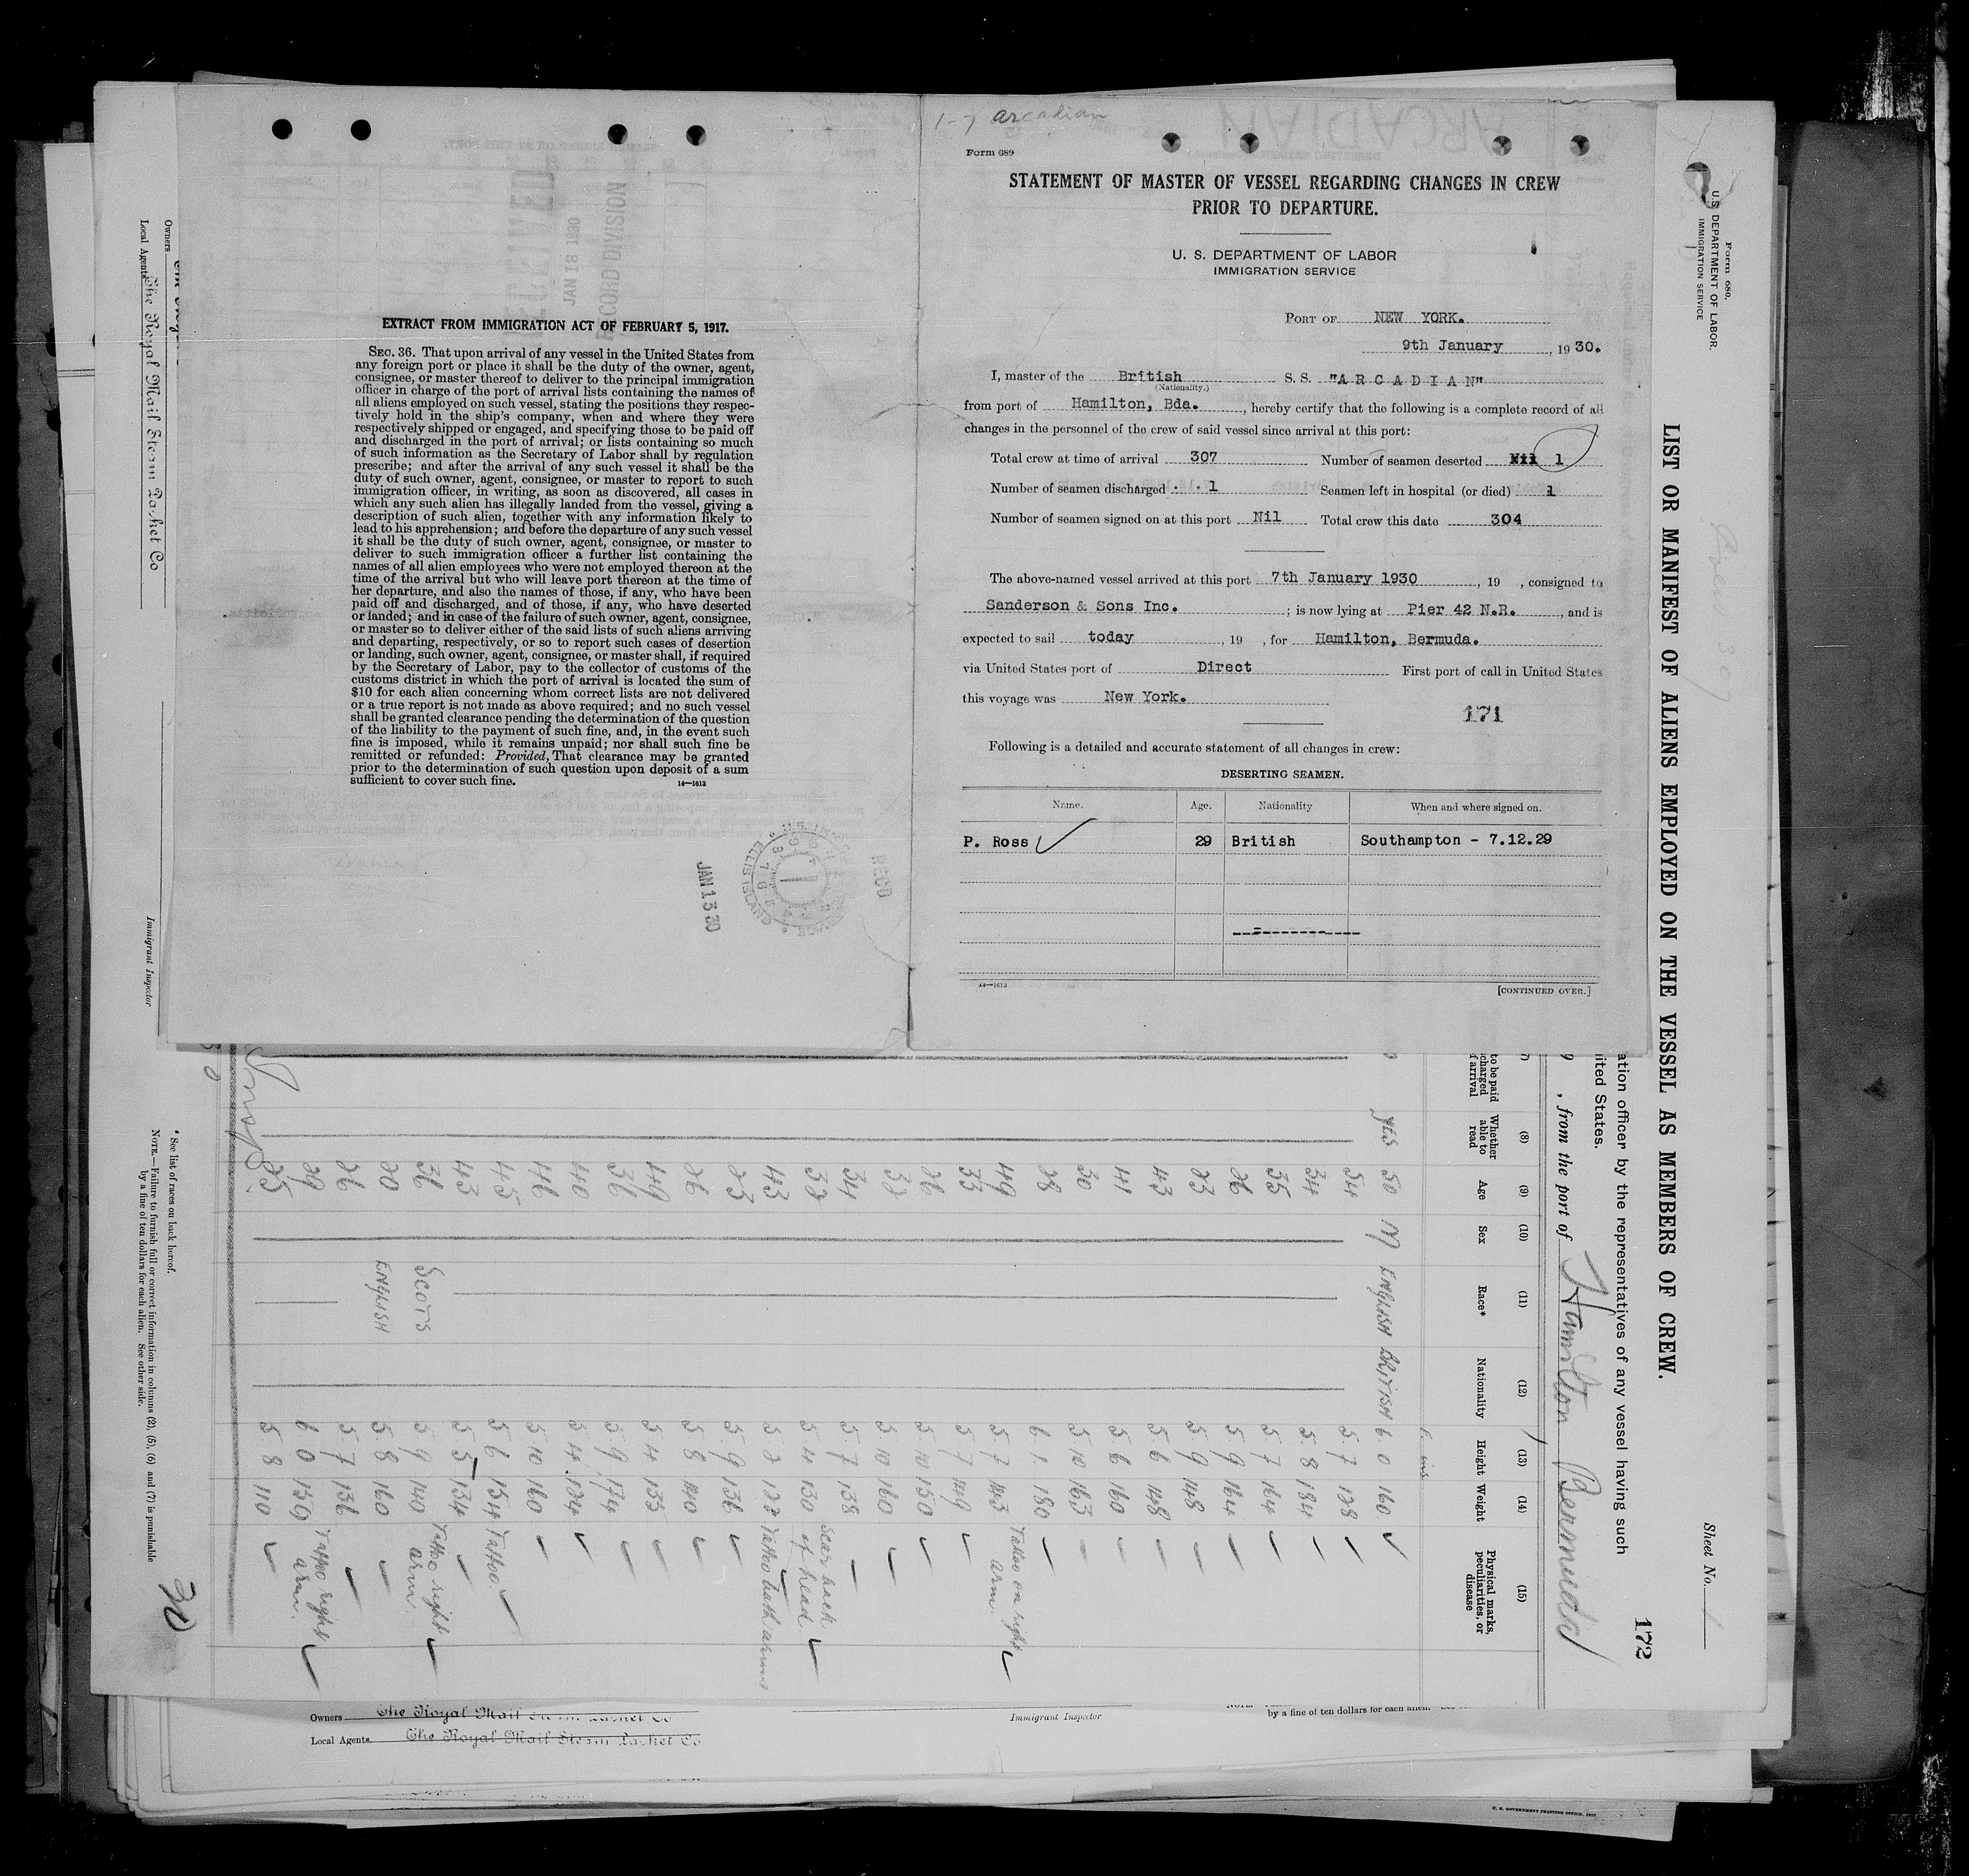 EXTRACT FROM IMMIGRATION ACT OF FEBRUARY 5, 1917.
SEC. 36. That upon arrival of any vessel in the United States from
any foreign port or place it shall be the duty of the owner, agent,
consignee, or master thereof to deliver to the principal immigration
officer in charge of the port of arrival lists containing the names of
all aliens employed on such vessel, stating the positions they respec-
tively hold in the ship's company, when and where they were
respectively shipped or engaged, and specifying those to be paid off
and discharged in the port of arrival; or lists containing so much
of such information as the Secretary of Labor shall by regulation
prescribe; and after the arrival of any such vessel it shall be the
duty of such owner, agent, consignee, or master to report to such
immigration officer, in writing, as soon as discovered, all cases in
which any such alien has illegally landed from the vessel, giving a
description of such alien, together with any information likely to
lead to his apprehension; and before the departure of any such vessel
it shall be the duty of such owner, agent, consignee, or master to
deliver to such immigration officer a further list containing the
names of all alien employees who were not employed thereon at the
time of the arrival but who will leave port thereon at the time of
her departure, and also the names of those, if any, who have been
paid off and discharged, and of those, if any, who have deserted
or landed; and in case of the failure of such owner, agent, consignee,
or master so to deliver either of the said lists of such aliens arriving
and departing, respectively, or so to report such cases of desertion
or landing, such owner, agent, consignee, or master shall, if required
by the Secretary of Labor, pay to the collector of customs of the
customs district in which the port of arrival is located the sum of
$10 for each alien concerning whom correct lists are not delivered
or a true report is not made as above required; and no such vessel
shall be granted clearance pending the determination of the question
of the liability to the payment of such fine, and, in the event such
fine is imposed, while it remains unpaid; nor shall such fine be
remitted or refunded: Provided, That clearance may be granted
prior to the determination of such question upon deposit of a sum
sufficient to cover such fine.
14—1613
JAN 18 1930
RECORD DIVISION
JAN 13 30
ELLIS ISLAND
REC'D
1-7 arcadian
Form 689
STATEMENT OF MASTER OF VESSEL REGARDING CHANGES IN CREW
PRIOR TO DEPARTURE.
U. S. DEPARTMENT OF LABOR
IMMIGRATION SERVICE
PORT OF NEW YORK.
9th January, 1930.
I, master of the British S. S. "ARCADIAN"
(Nationality.)
from port of Hamilton, Bda., hereby certify that the following is a complete record of all
changes in the personnel of the crew of said vessel since arrival at this port:
Total crew at time of arrival 307 Number of seamen deserted Nil 1
Number of seamen discharged 1 Seamen left in hospital (or died) 1
Number of seamen signed on at this port Nil Total crew this date 304
The above-named vessel arrived at this port 7th January 1930, 19 , consigned to
Sanderson & Sons Inc. ; is now lying at Pier 42 N.R., and is
expected to sail today, 19 , for Hamilton, Bermuda.
via United States port of Direct First port of call in United States
this voyage was New York.
171
Following is a detailed and accurate statement of all changes in crew:
DESERTING SEAMEN.
Name. Age. Nationality When and where signed on.
P. Ross 29 British Southampton - 7.12.29
14—1613
[CONTINUED OVER.]
Form 680.
U.S. DEPARTMENT OF LABOR.
IMMIGRATION SERVICE
LIST OR MANIFEST OF ALIENS EMPLOYED ON THE VESSEL AS MEMBERS OF CREW.
Sheet No.
172
ation officer by the representatives of any vessel having such
ited States.
, from the port of Hamilton Bermuda
(8) (9) (10) (11) (12) (13) (14) (15)
to be paid
charged
f arrival
Whether
able to
read
Age
Sex
Race*
Nationality
Height
Weight
Physical marks,
peculiarities, or
disease
yes 50 M ENGLISH BRITISH 6 0 160
54 5 7 138
34 5 8 184
35 5 7 164
26 5 9 164
23 5 9 148
43 5 6 148
41 5 6 160
30 5 10 163
28 6 1 180
49 5 7 143 Tattoo on right arm.
33 5 7 149
26 5 10 150
33 5 10 160
34 5 7 138
33 5 4 130 Scar back of head
43 5 3 133 Tattoo both arms
23 5 9 136
26 5 8 140
49 5 4 133
36 5 9 174
40 5 4 134
46 5 10 160
45 5 6 154 Tattoo.
43 5 5 134
36 Scots 5 9 140 Tattoo right arm
20 ENGLISH 5 8 160
26 5 7 136
29 6 0 150 Tattoo right arm.
25 5 8 110
30
* See list of races on back hereof.
NOTE.—Failure to furnish full or correct information in columns (2), (5), (6) and (7) is punishable
by a fine of ten dollars for each alien. See other side.
Immigrant Inspector
Owners
Local Agents The Royal Mail Steam Packet Co
Owners The Royal Mail Steam Packet Co
Local Agents The Royal Mail Steam Packet Co
Immigrant Inspector
by a fine of ten dollars for each alien.
U. S. GOVERNMENT PRINTING OFFICE